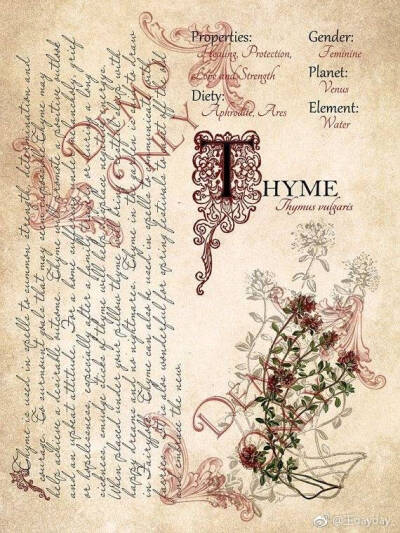 Properties:
Healing, Protection,
Love and Strength
Diety:
Aphrodite, Ares
Gender:
Feminine
Planet:
Venus
Element:
Water
THYME
Thymus vulgaris
Thyme is used in spells to summon strength, determination and
courage. To surmount goals that may seem impossible. Thyme may
help achieve a desirable outcome. Thyme will promote a positive outlook
and an upbeat attitude. For a home suffering from grief
or hopelessness, especially after a family tragedy or such as a long
sickness, smudge sticks of thyme will help replace negative energy.
When placed under your pillow thyme brings restful sleep with
happy dreams and no nightmares. Thyme in the garden is said to draw
in Thyme can also be used in spells to communicate with
faeries. It is also wonderful for spring festivals to cast off the old
and embrace the new.
DEMO
ONLY